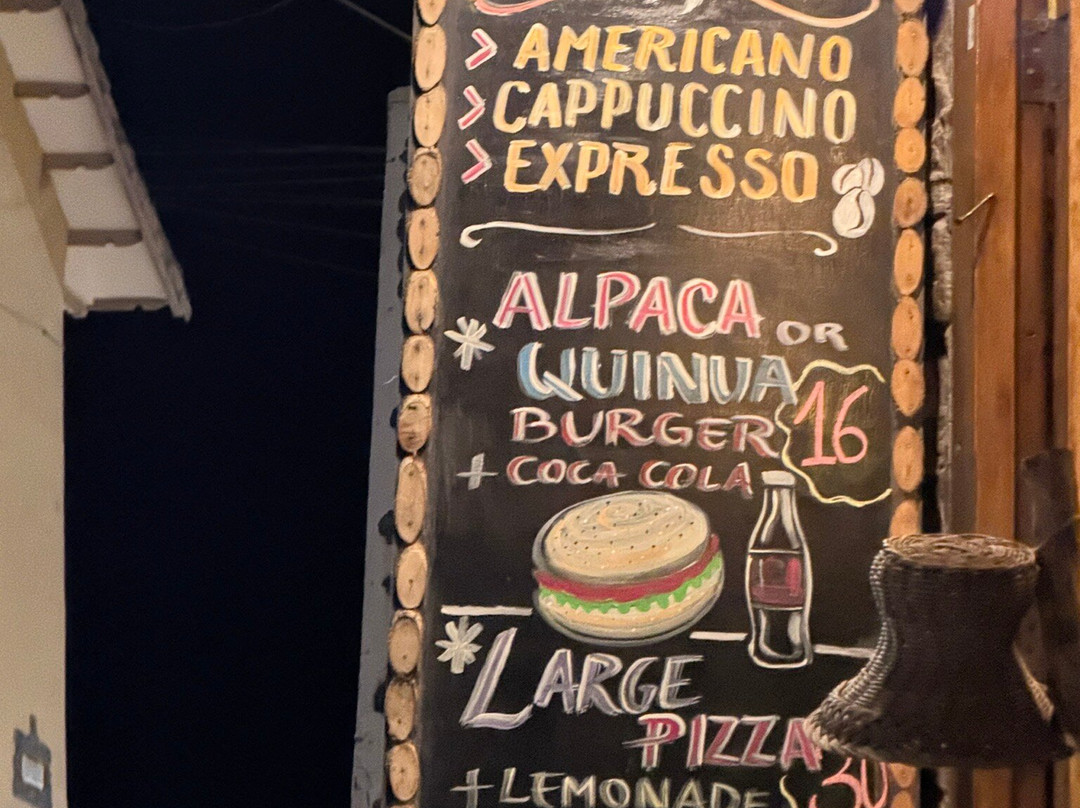 > AMERICANO
> CAPPUCCINO
> EXPRESSO
* ALPACA OR
QUINUA
BURGER 16
+ COCA COLA
* LARGE
PIZZA
+ LEMONADE 30